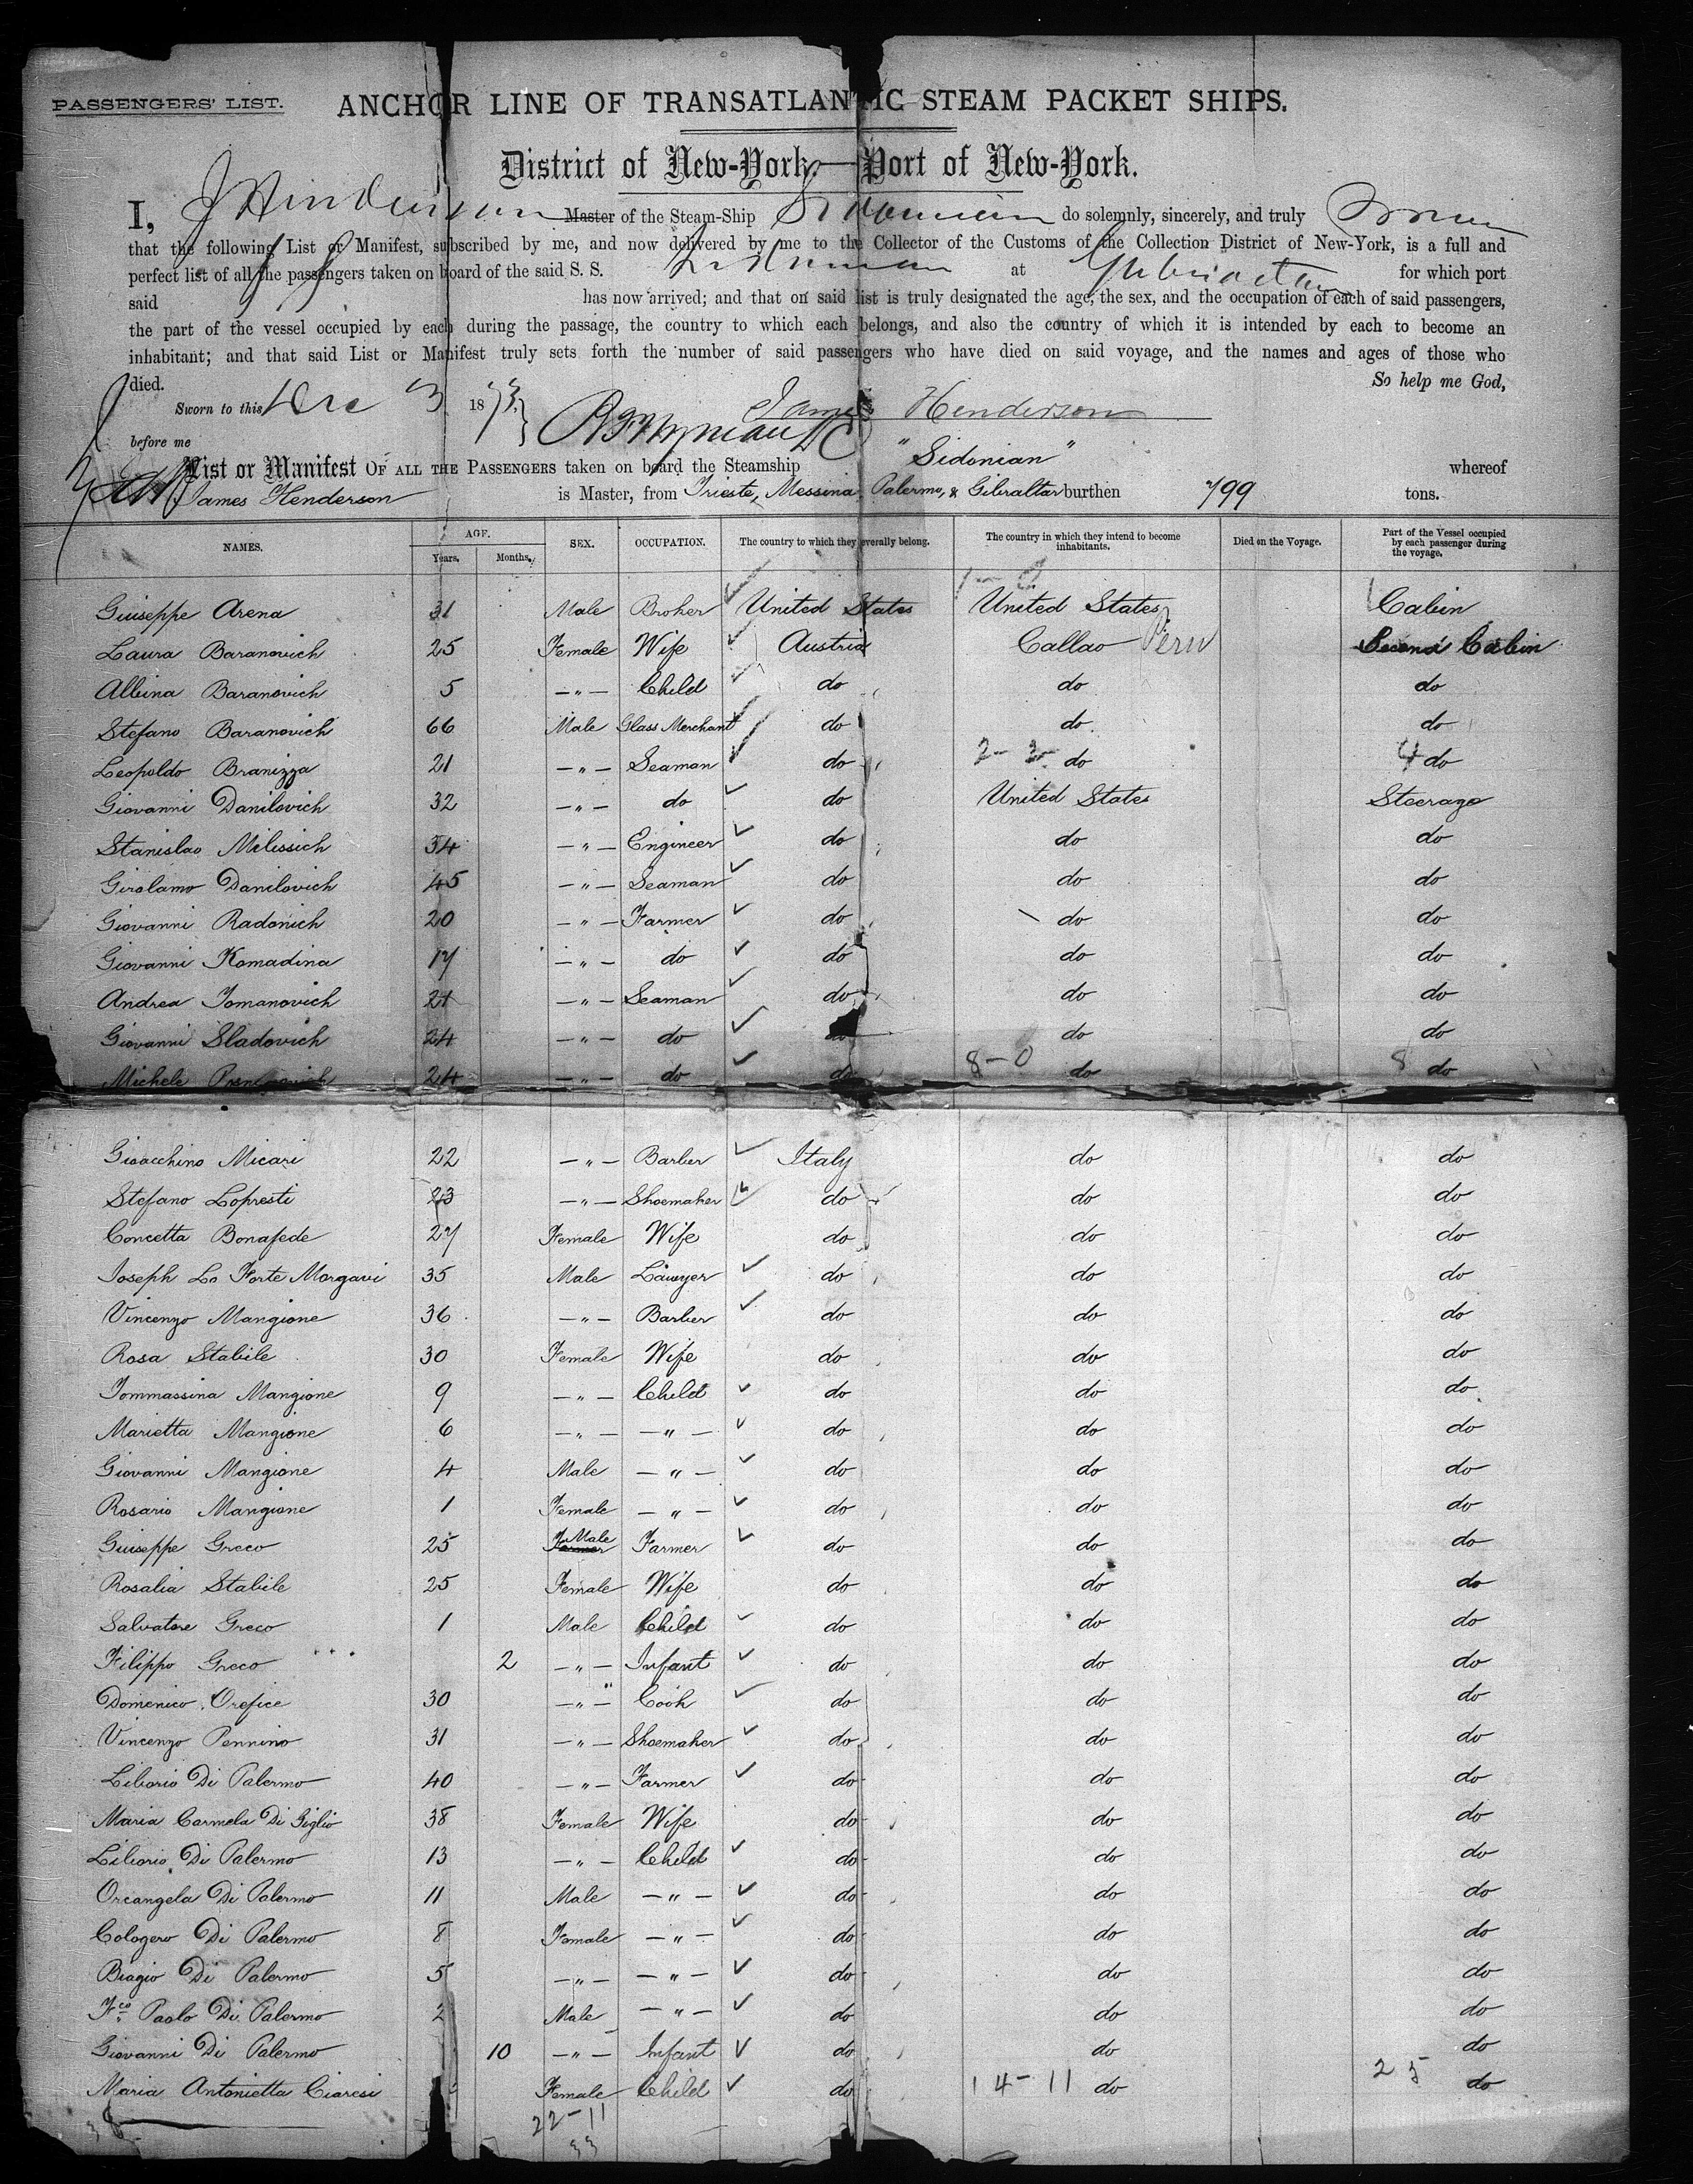 PASSENGERS' LIST.
ANCHOR LINE OF TRANSATLANTIC STEAM PACKET SHIPS.
District of New-York—Port of New-York.
I, J Henderson Master of the Steam-Ship Sidonian do solemnly, sincerely, and truly Swear
that the following List or Manifest, subscribed by me, and now delivered by me to the Collector of the Customs of the Collection District of New-York, is a full and
perfect list of all the passengers taken on board of the said S. S. Sidonian at Gibraltar for which port
said has now arrived; and that on said list is truly designated the age, the sex, and the occupation of each of said passengers,
the part of the vessel occupied by each during the passage, the country to which each belongs, and also the country of which it is intended by each to become an
inhabitant; and that said List or Manifest truly sets forth the number of said passengers who have died on said voyage, and the names and ages of those who
died. So help me God,
Sworn to this Dec 3 1873. James Henderson
before me
List or Manifest OF ALL THE PASSENGERS taken on board the Steamship "Sidonian" whereof
James Henderson is Master, from Trieste, Messina, Palermo, & Gibraltar burthen 799 tons.
NAMES. AGE. Years. Months. SEX. OCCUPATION. The country to which they severally belong. The country in which they intend to become inhabitants. Died on the Voyage. Part of the Vessel occupied by each passenger during the voyage.
1 - 0
Giuseppe Arena 31 Male Broker United States United States 1 Cabin
Laura Baranovich 25 Female Wife Austria Callao Peru Second Cabin
Albina Baranovich 5 —"— Child do do do
Stefano Baranovich 66 Male Glass Merchant do do do
Leopoldo Branizza 21 —"— Seaman do 2 - 3 do 4 do
Giovanni Danilovich 32 —"— do do United States Steerage
Stanislao Milissich 34 —"— Engineer do do do
Girolamo Danilovich 45 —"— Seaman do do do
Giovanni Radonich 20 —"— Farmer do do do
Giovanni Komadina 17 —"— do do do do
Andrea Tomanovich 21 —"— Seaman do do do
Giovanni Sladovich 24 —"— do do do do
Michele 24 —"— do do 8 - 0 do 8 do
Gioacchino Micari 22 —"— Barber Italy do do
Stefano Lopresti 23 —"— Shoemaker do do do
Concetta Bonafede 27 Female Wife do do do
Joseph Lo Forte Morgavi 35 Male Lawyer do do do
Vincenzo Mangione 36 —"— Barber do do do
Rosa Stabile 30 Female Wife do do do
Tommassina Mangione 9 —"— Child do do do
Marietta Mangione 6 —"— —"— do do do
Giovanni Mangione 4 Male —"— do do do
Rosario Mangione 1 Female —"— do do do
Giuseppe Greco 25 Farmer Male Farmer do do do
Rosalia Stabile 25 Female Wife do do do
Salvatore Greco 1 Male Child do do do
Filippo Greco 2 —"— Infant do do do
Domenico Orefice 30 —"— Cook do do do
Vincenzo Pennino 31 —"— Shoemaker do do do
Liborio Di Palermo 40 —"— Farmer do do do
Maria Carmela Di Giglio 38 Female Wife do do do
Liborio Di Palermo 13 —"— Child do do do
Orcangela Di Palermo 11 Male —"— do do do
Cologero Di Palermo 8 Female —"— do do do
Biagio Di Palermo 5 —"— —"— do do do
Fco Paolo Di Palermo 2 Male —"— do do do
Giovanni Di Palermo 10 —"— Infant do do do
Maria Antonietta Ciaresi Female Child do 14 - 11 do 25 do
38
22-11
33